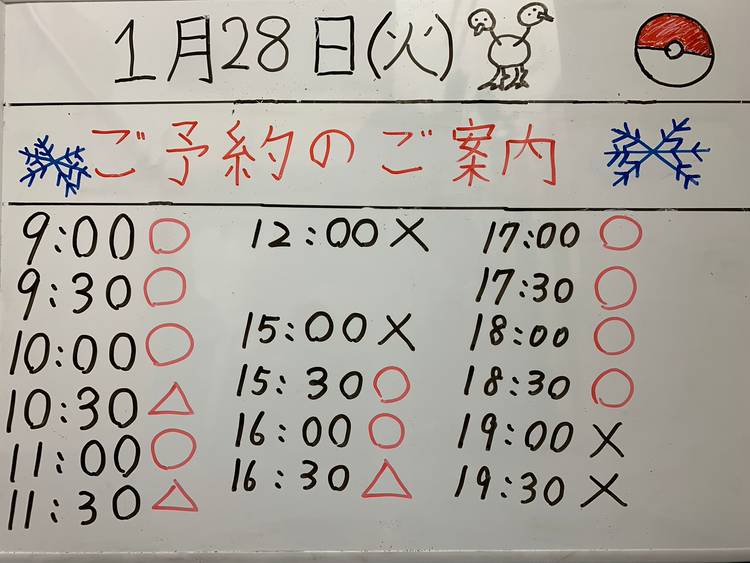 1月28日(火)
ご予約のご案内
9:00 ○
9:30 ○
10:00 ○
10:30 △
11:00 ○
11:30 △
12:00 ×
15:00 ×
15:30 ○
16:00 ○
16:30 △
17:00 ○
17:30 ○
18:00 ○
18:30 ○
19:00 ×
19:30 ×